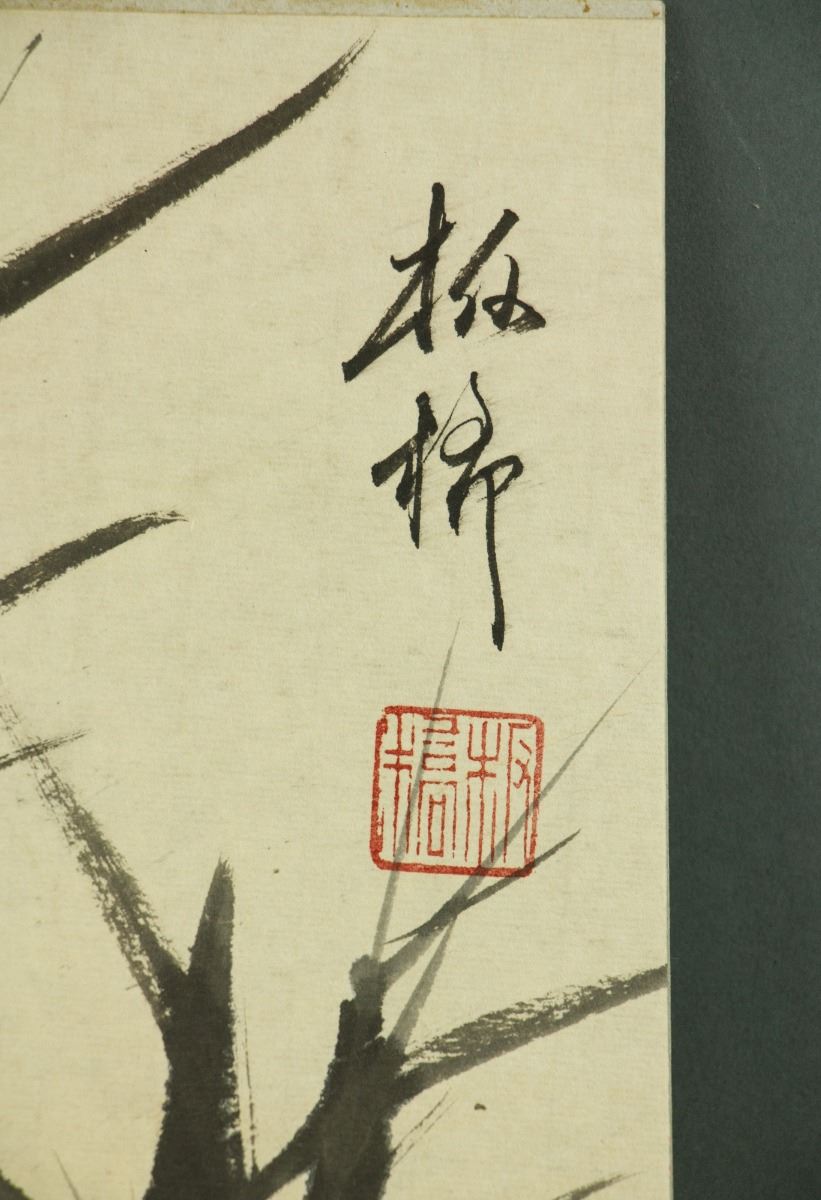 板橋
板橋